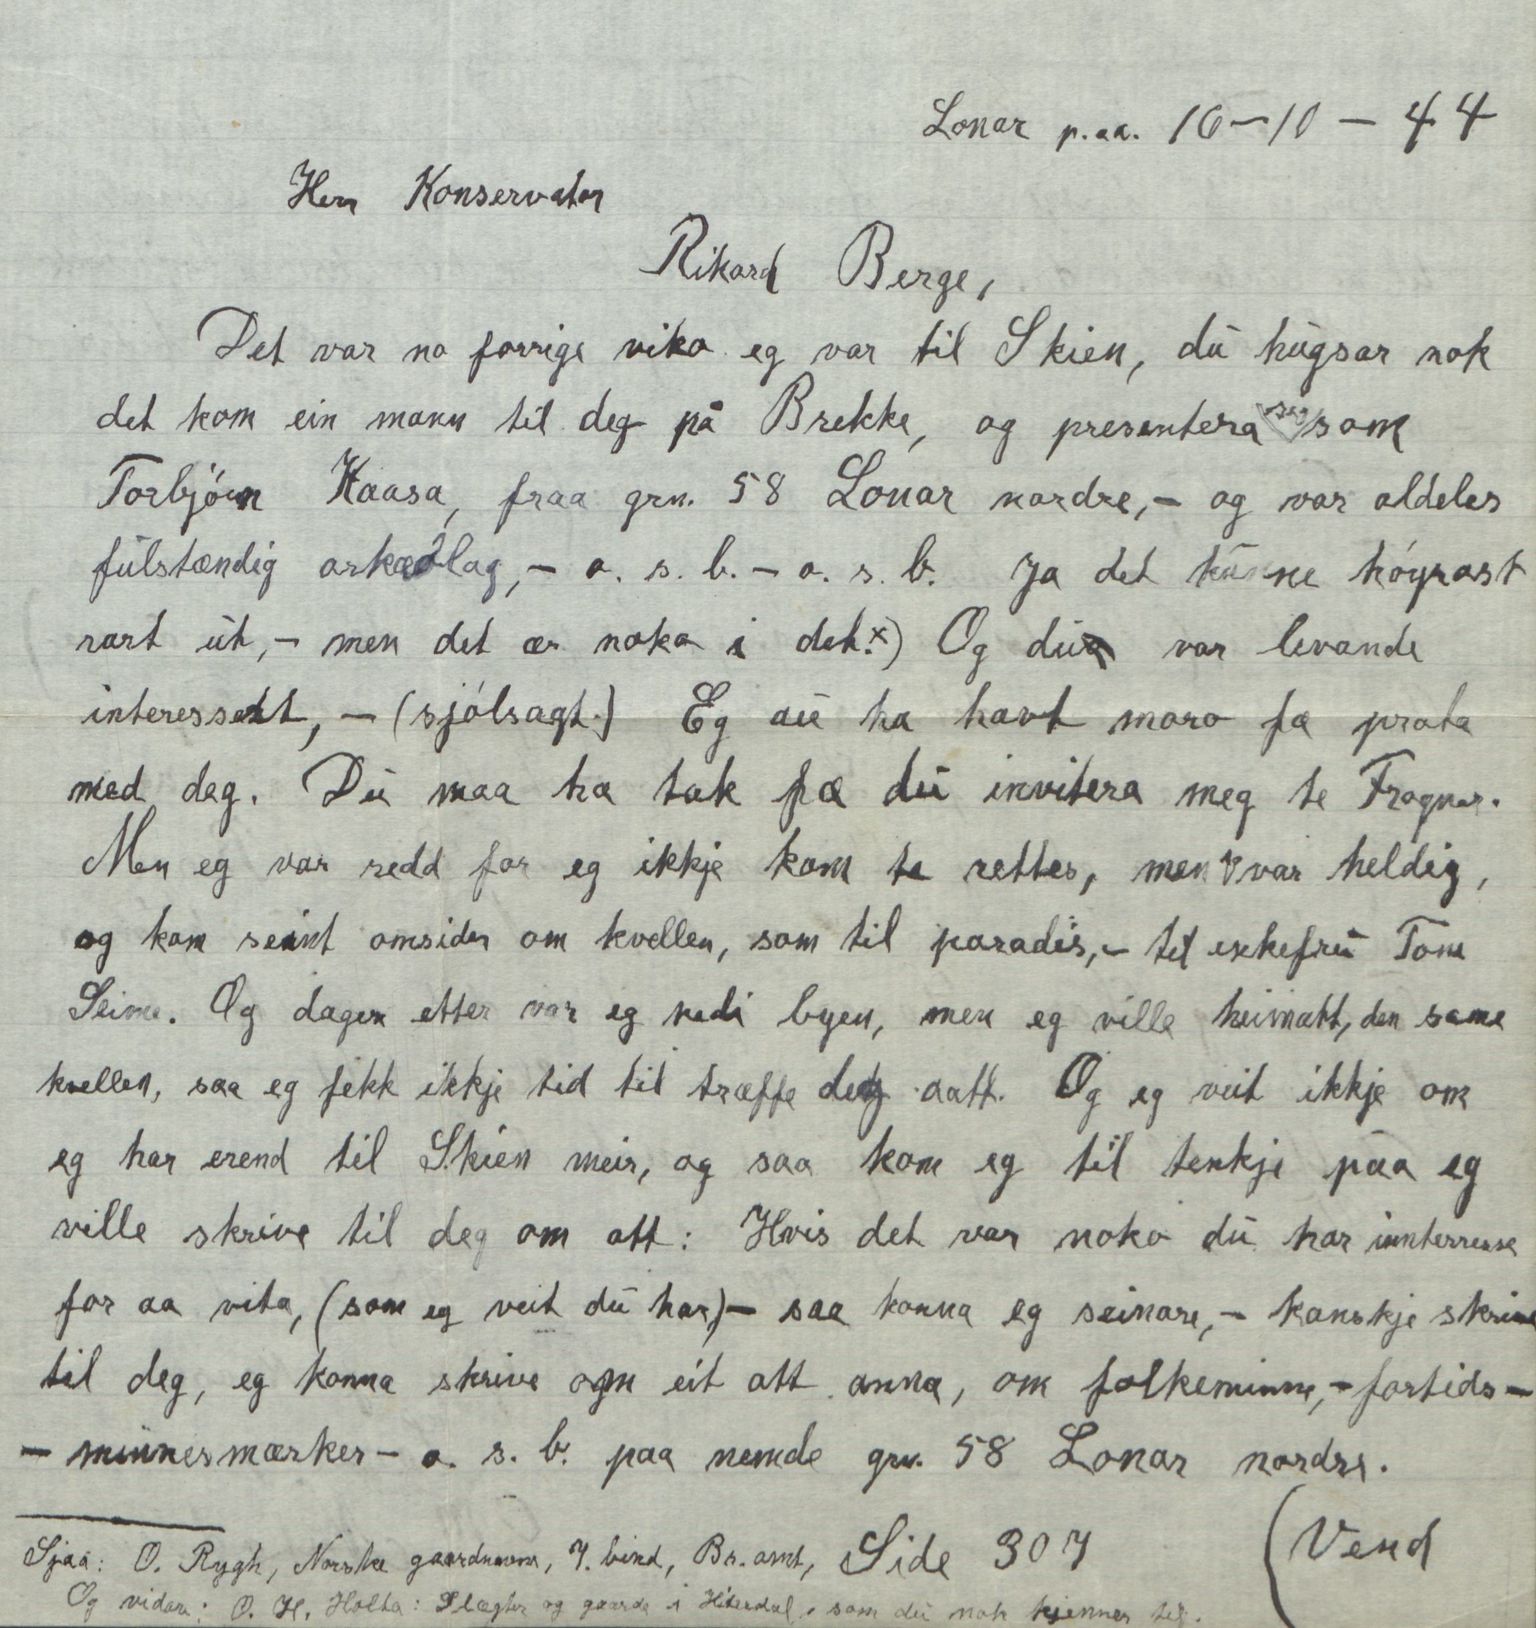 Lonar p.aa. 16-10-44
Herr Konservator
Rikard Berge,
Det var no forrige viko eg var til Skien, dū hūgsar nok
det kom ein mann til deg på Brekke, og presentera seg som
Torbjórn Haasa, fraa grn. 58 Lonar nordre,- og var aldeles
fūlstændig arkæolag,- o. s. b. - o. s. b. Ja det kūnne hóyrast
rart ūt,- men det ær noko i det.x) Og dū var levande
interessert, - (sjólsagt.) Eg aū ha havt moro fa prata
med deg. Dū maa ha tak fa dū invitera meg te Frogner.
Men eg var redd for eg ikkje kom te rettes, men var heldig,
og kom seint omsider om kvellen, som til paradis,- til enkefrū Tone
Seime. Og dagen etter var eg nedi byen, men eg ville heimatt, den same
kvellen, saa eg fekk ikkje tid til træffe deg aatt. Og eg veit ikkje om
eg har erend til Skien meir, og saa kom eg til tenkje paa eg
ville skrive til deg om att: Hvis det var noko dū har innterresse
for aa vita, (som eg veit dū har,)- saa konna eg seinare,- kanskje skrive
til deg, eg konna skrive om eit att anna, om folkeminne,- fortids-
- minnesmærker - o. s. b. paa nemde grn. 58 Lonar nordre.
Sjaa: O. Rygh, Norske gaardnavne, 7. bind, Br. amt, Side 307
(Vend
Og vidare: O. H. Holta: Slægter og gaarde i Hiterdal, som dū nok kjenner til.